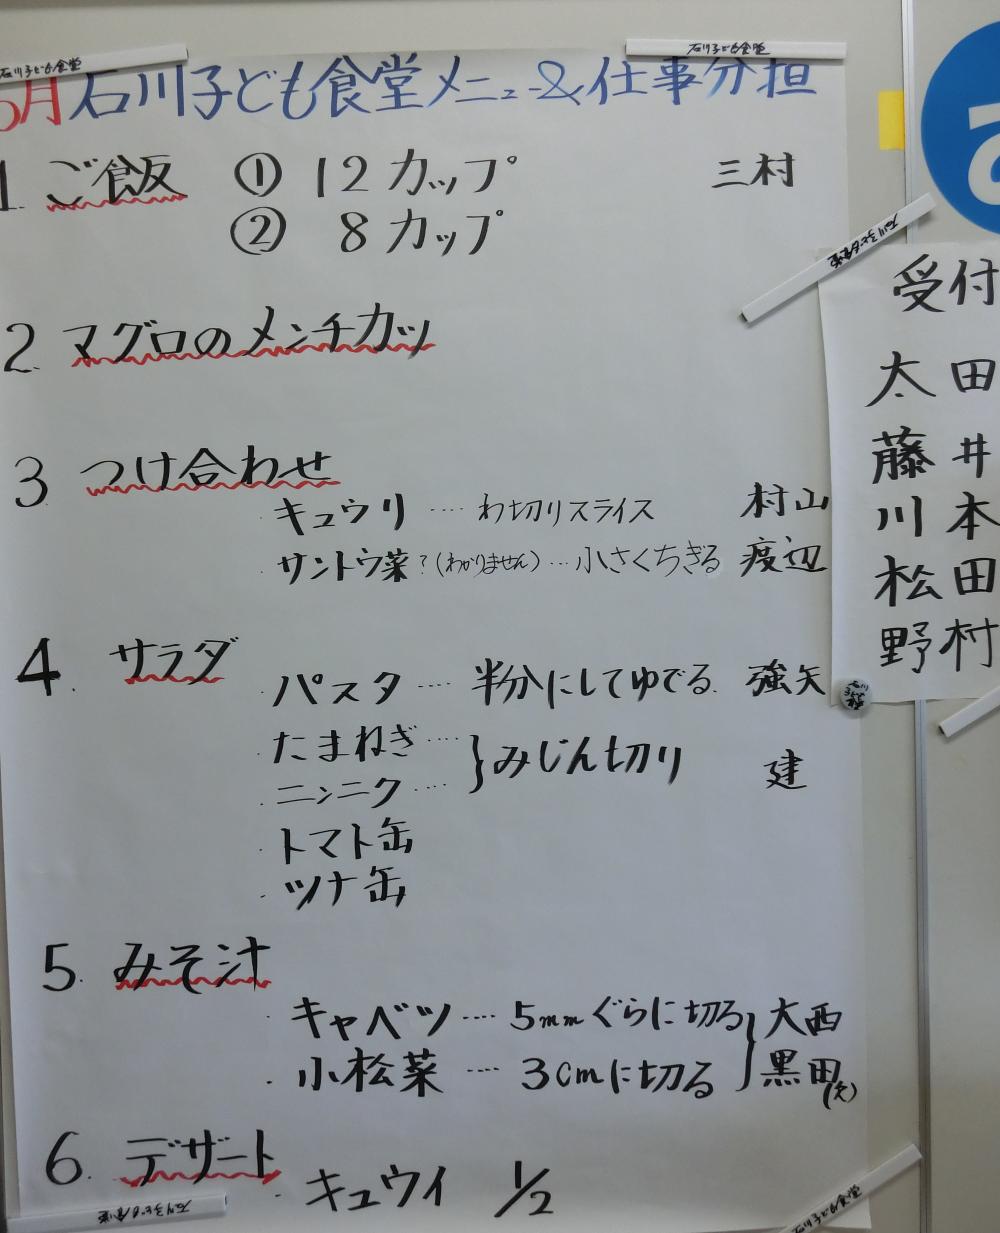 月石川子ども食堂メニュー&仕事分担
1. ご飯 ① 12カップ 三村
② 8カップ
2. マグロのメンチカツ
3 つけ合わせ
・キュウリ …… わ切りスライス 村山
・サントウ菜?(わかりません)…小さくちぎる 渡辺
4. サラダ
・パスタ …… 半分にしてゆでる. 強矢
・たまねぎ ……
・ニンニク …… }みじん切り 建
・トマト缶
・ツナ缶
5. みそ汁
・キャベツ …… 5mmぐらに切る 大西
・小松菜 …… 3cmに切る 黒田
6. デザート
・キュウイ 1/2
受付
太田
藤井
川本
松田
野村
石川子ども食堂
石川子ども食堂
石川子ども食堂
石川子ども食堂
石川子ども食堂